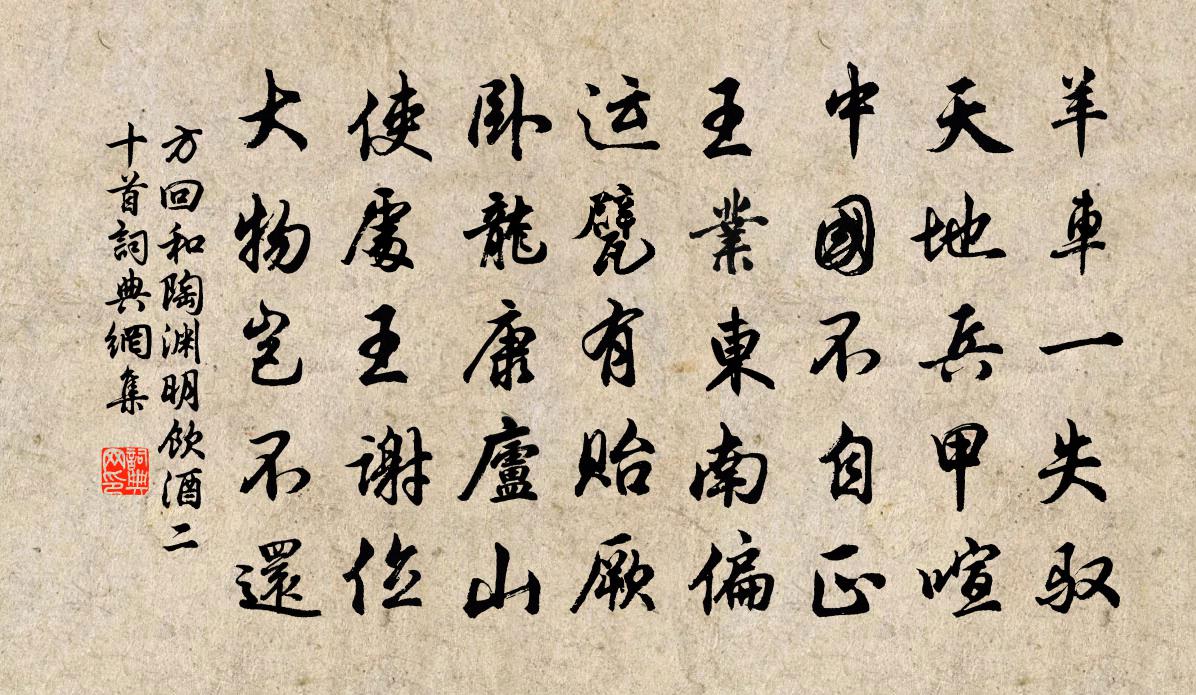 羊車一失驭
天地兵甲喧
中國不自正
王業東南偏
运甓有貽厥
卧龍康廬山
使處王謝位
大物岂不還
方回和陶渊明飲酒二
十首詞典網集
詞典
网印